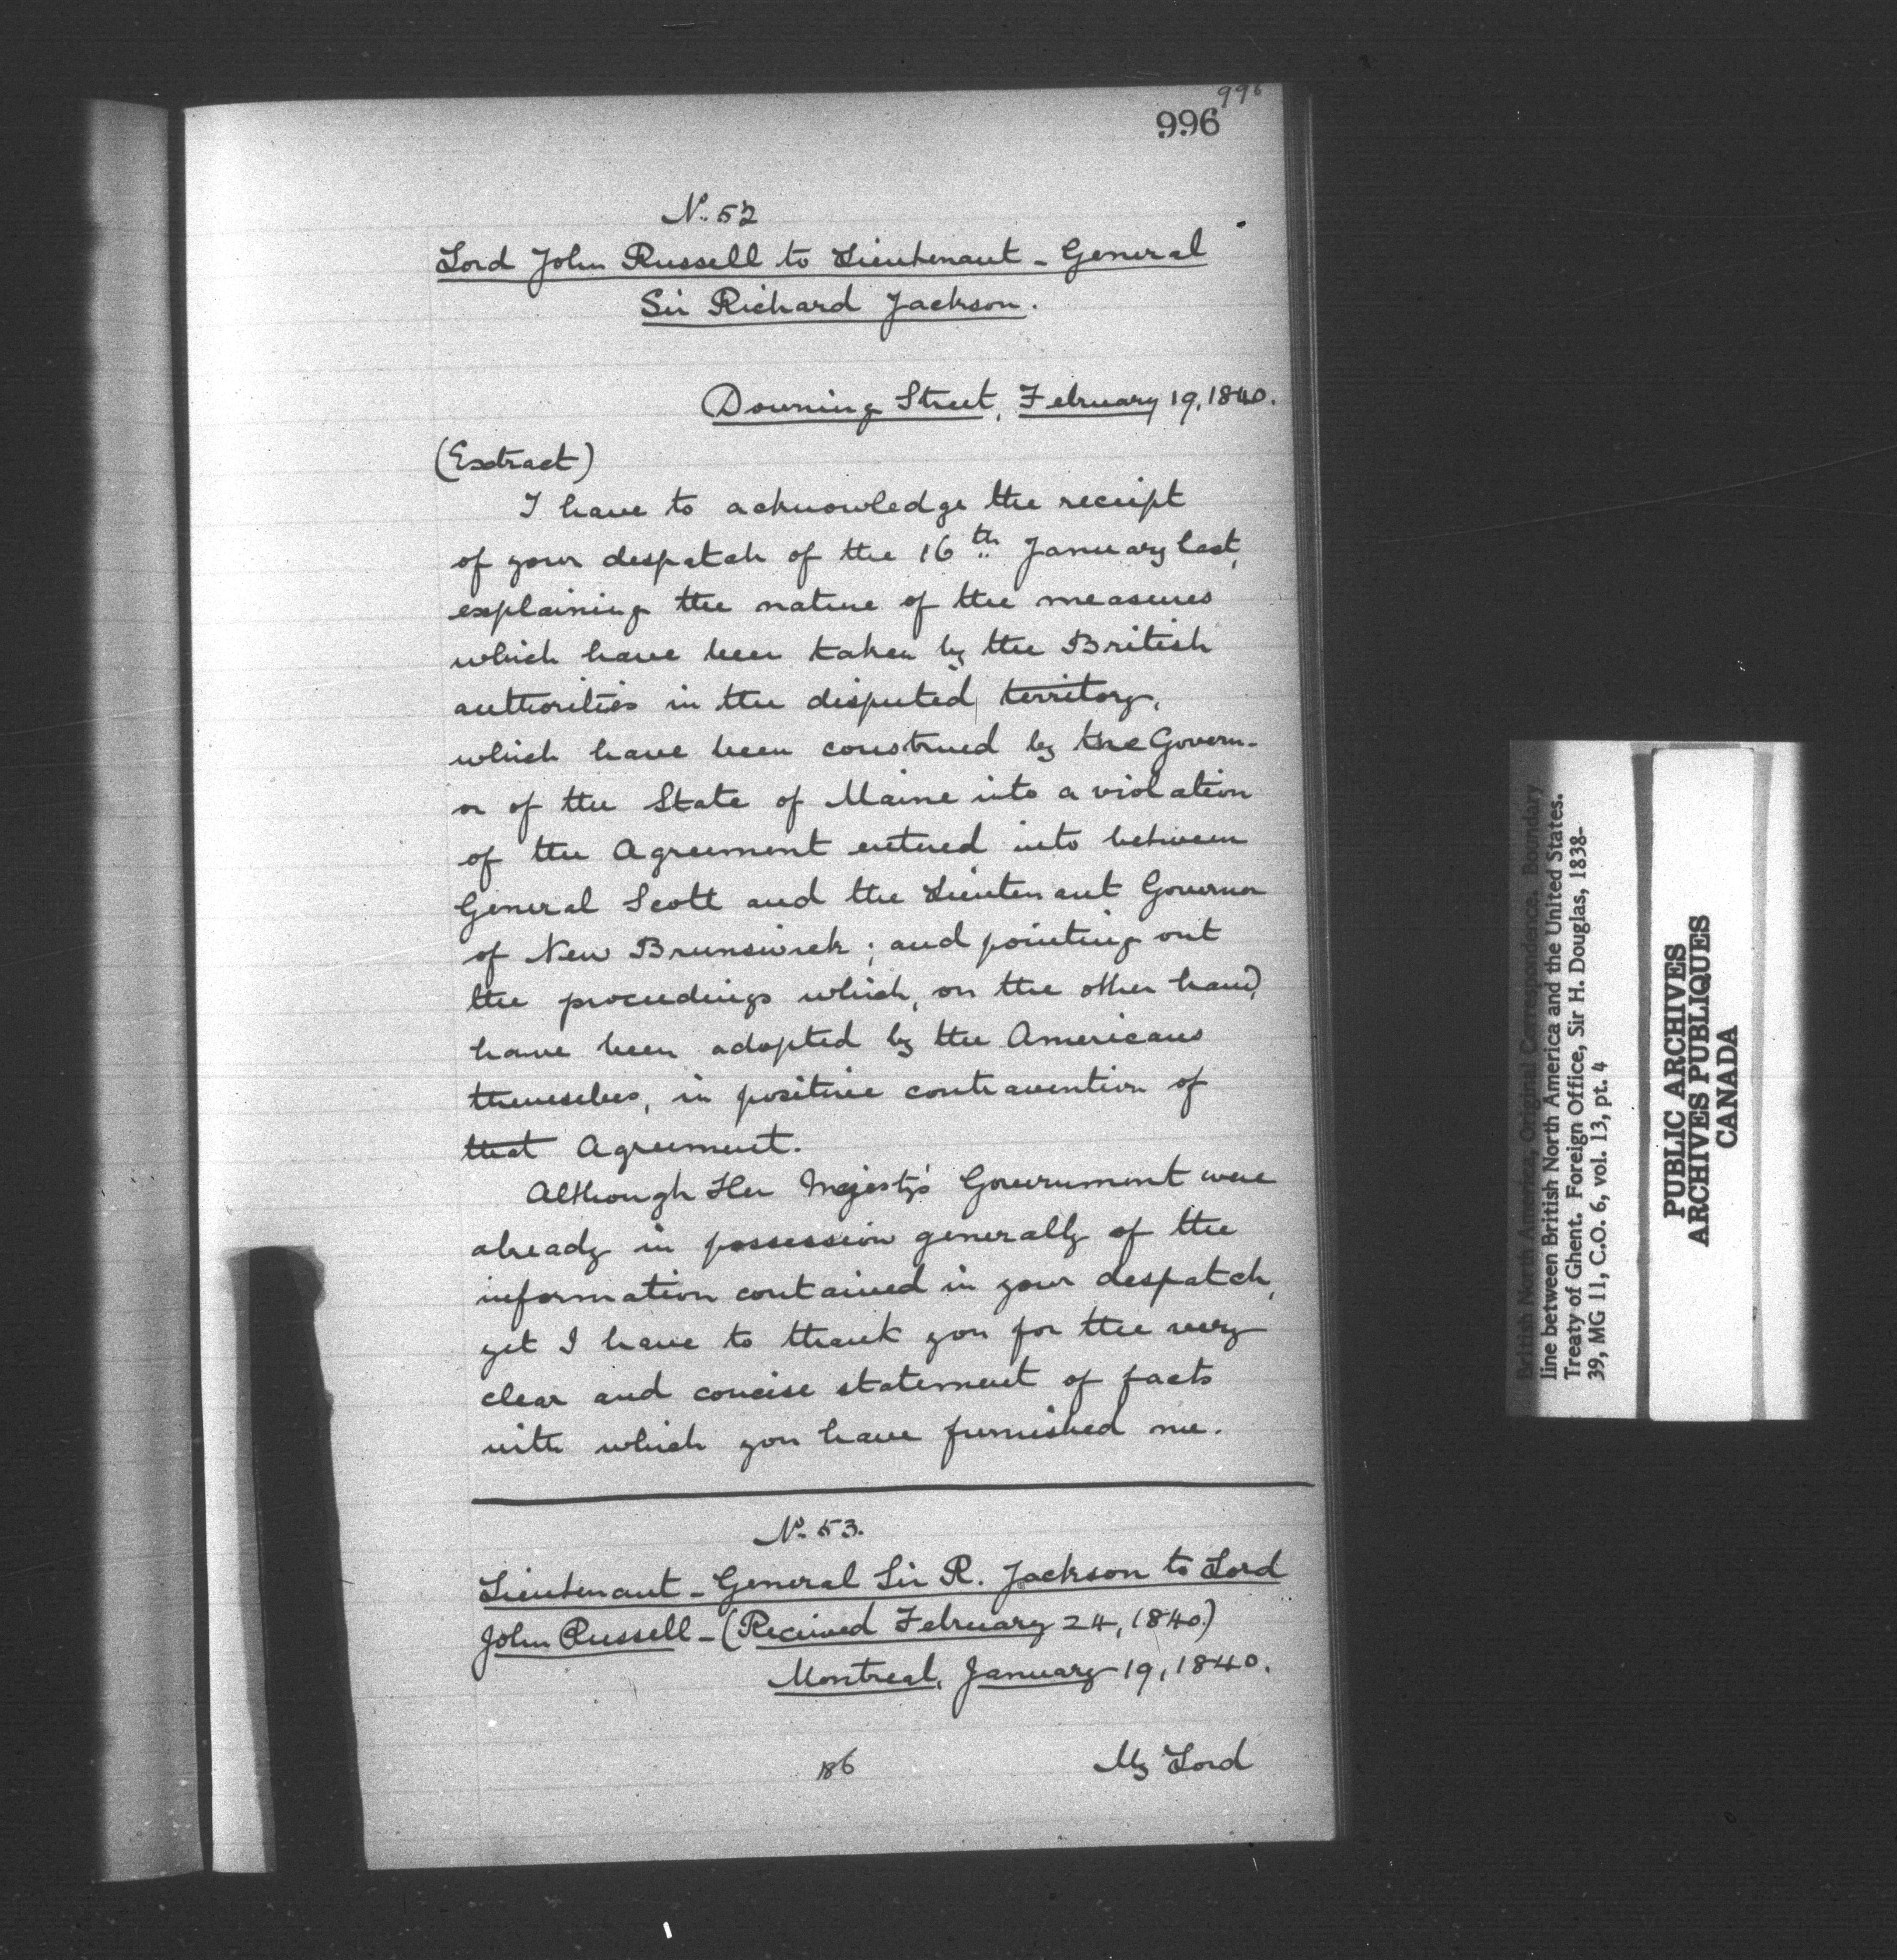 996
996
No. 52
Lord John Russell to Lieutenant-General
Sir Richard Jackson.
Downing Street, February 19, 1840.
(Extract)
I have to acknowledge the receipt
of your despatch of the 16th January last,
explaining the nature of the measures
which have been taken by the British
authorities in the disputed territory,
which have been construed by the Govern-
or of the State of Maine into a violation
of the Agreement entered into between
General Scott and the Lieutenant Governor
of New Brunswick; and pointing out
the proceedings which, on the other hand,
have been adopted by the Americans
themselves, in positive contravention of
that Agreement.
Although Her Majesty's Government were
already in possession generally of the
information contained in your despatch,
yet I have to thank you for the very
clear and concise statement of facts
with which you have furnished me.
No. 53.
Lieutenant-General Sir R. Jackson to Lord
John Russell - (Received February 24, 1840.)
Montreal, January 19, 1840.
My Lord
186
British North America, Original Correspondence. Boundary
line between British North America and the United States.
Treaty of Ghent. Foreign Office, Sir H. Douglas, 1838-
39, MG 11, C.O. 6, vol. 13, pt. 4
PUBLIC ARCHIVES
ARCHIVES PUBLIQUES
CANADA